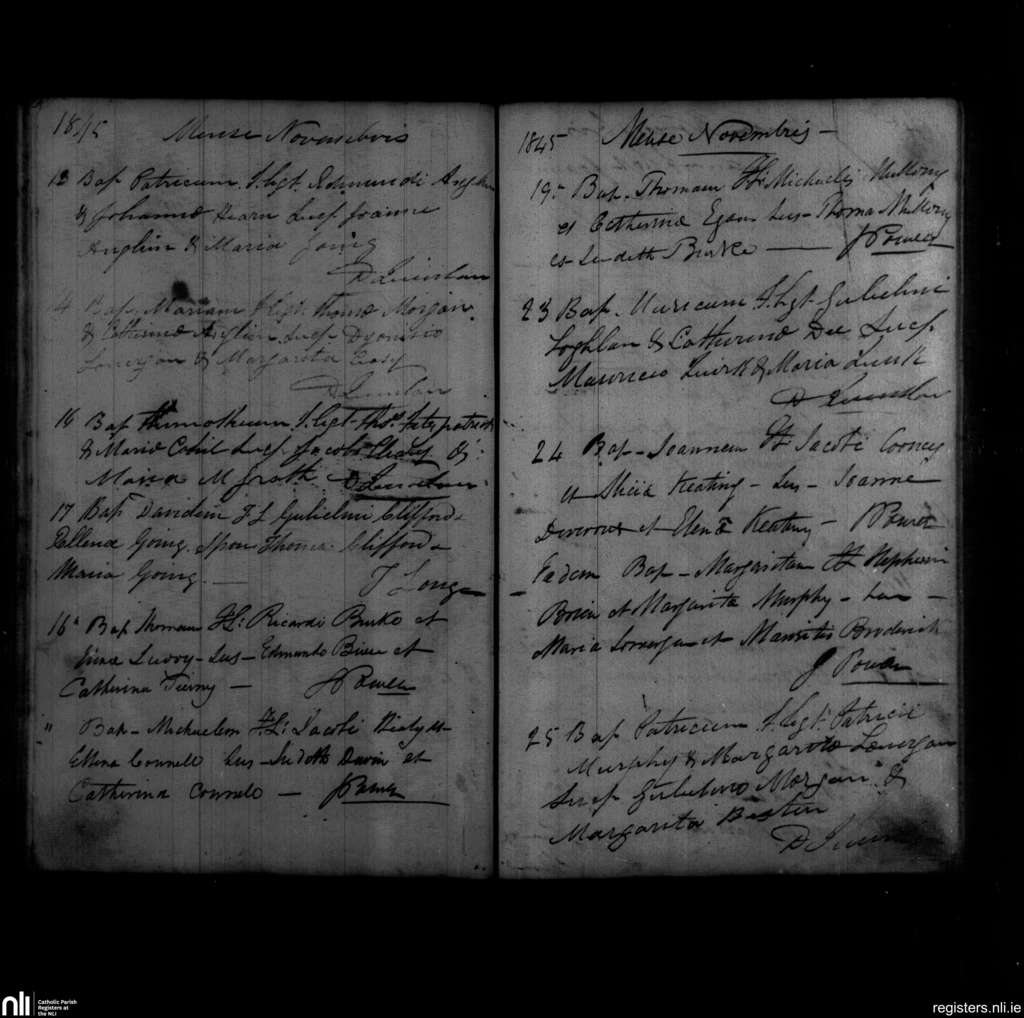 1845 Mense Novembris
13 Bap Patricium F. Lgt. Edmundi
& Johanna Hearn Susp Joanne
Anglim & Maria Going
D Quinlan
4 Bap. Mariam F Lgt. Thoma Morgan
& Catherina Anglim Susp Dyonisio
Lonergan & Margarita
D Quinlan
16 Bap Thimotheum F. Lgt. Thos. Fitzpatrick
& Maria Cahil Susp Jacobo &
Maria M Grath D Quinlan
17 Bap Davidem F L Gulielmi Clifford &
Ellena Going. Spon Thoma Clifford &
Maria Going
T Long
16 Bap Thomam FL: Ricardi Burke et
Lus - Edmundo et
Catherina Tierny — J Power
" Bap - Michaelem FL: Jacobi Healy et
Ellena Connell Lus - Judith et
Catherina Connelo — J Power
1845 Mense Novembris —
19 - Bap. Thomam FL: Michaelis Mullony
et Catherina Egan Lus - Thoma Mullony
et Judith Burke — J Power
23 Bap. Mauricium F. Lgt Gulielmi
Loghlan & Catherina Dee Susp
Mauricio Quirk & Maria Quirk
D Quinlan
24 Bap - Joannem FL Jacobi Cooney
et Alicia Keating - Lus - Joanne
Devereux et Elena Keating — J Power
Eadem Bap - Margaritam FL Stephani
Brien et Margarita Murphy - Lus -
Maria Lonergan et Mauritio Broderick
J Power
25 Bap Patricium F. Lgt. Patricii
Murphy & Margarita Lonergan
Susp Gulielmo Morgan &
Margarita
D Quinlan
nli Catholic Parish
Registers at
the NLI
registers.nli.ie